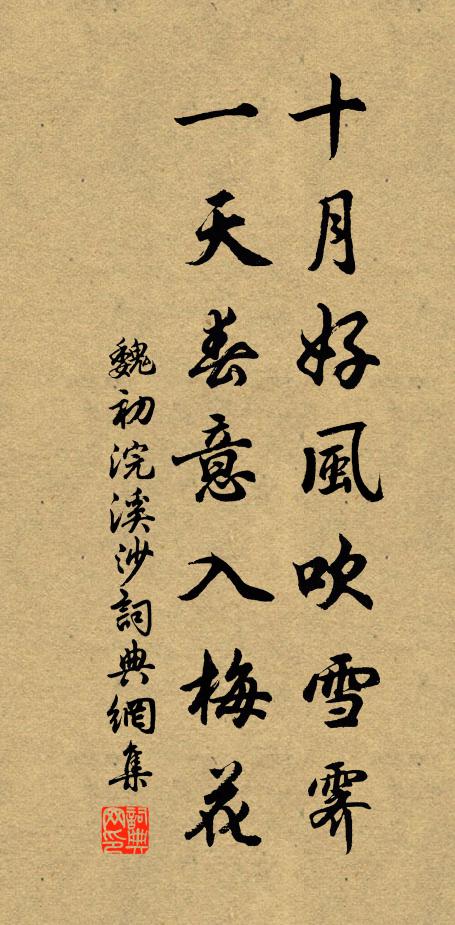 十月好風吹雪霽
一天春意入梅花
魏初浣溪沙詞典網集
詞典网印